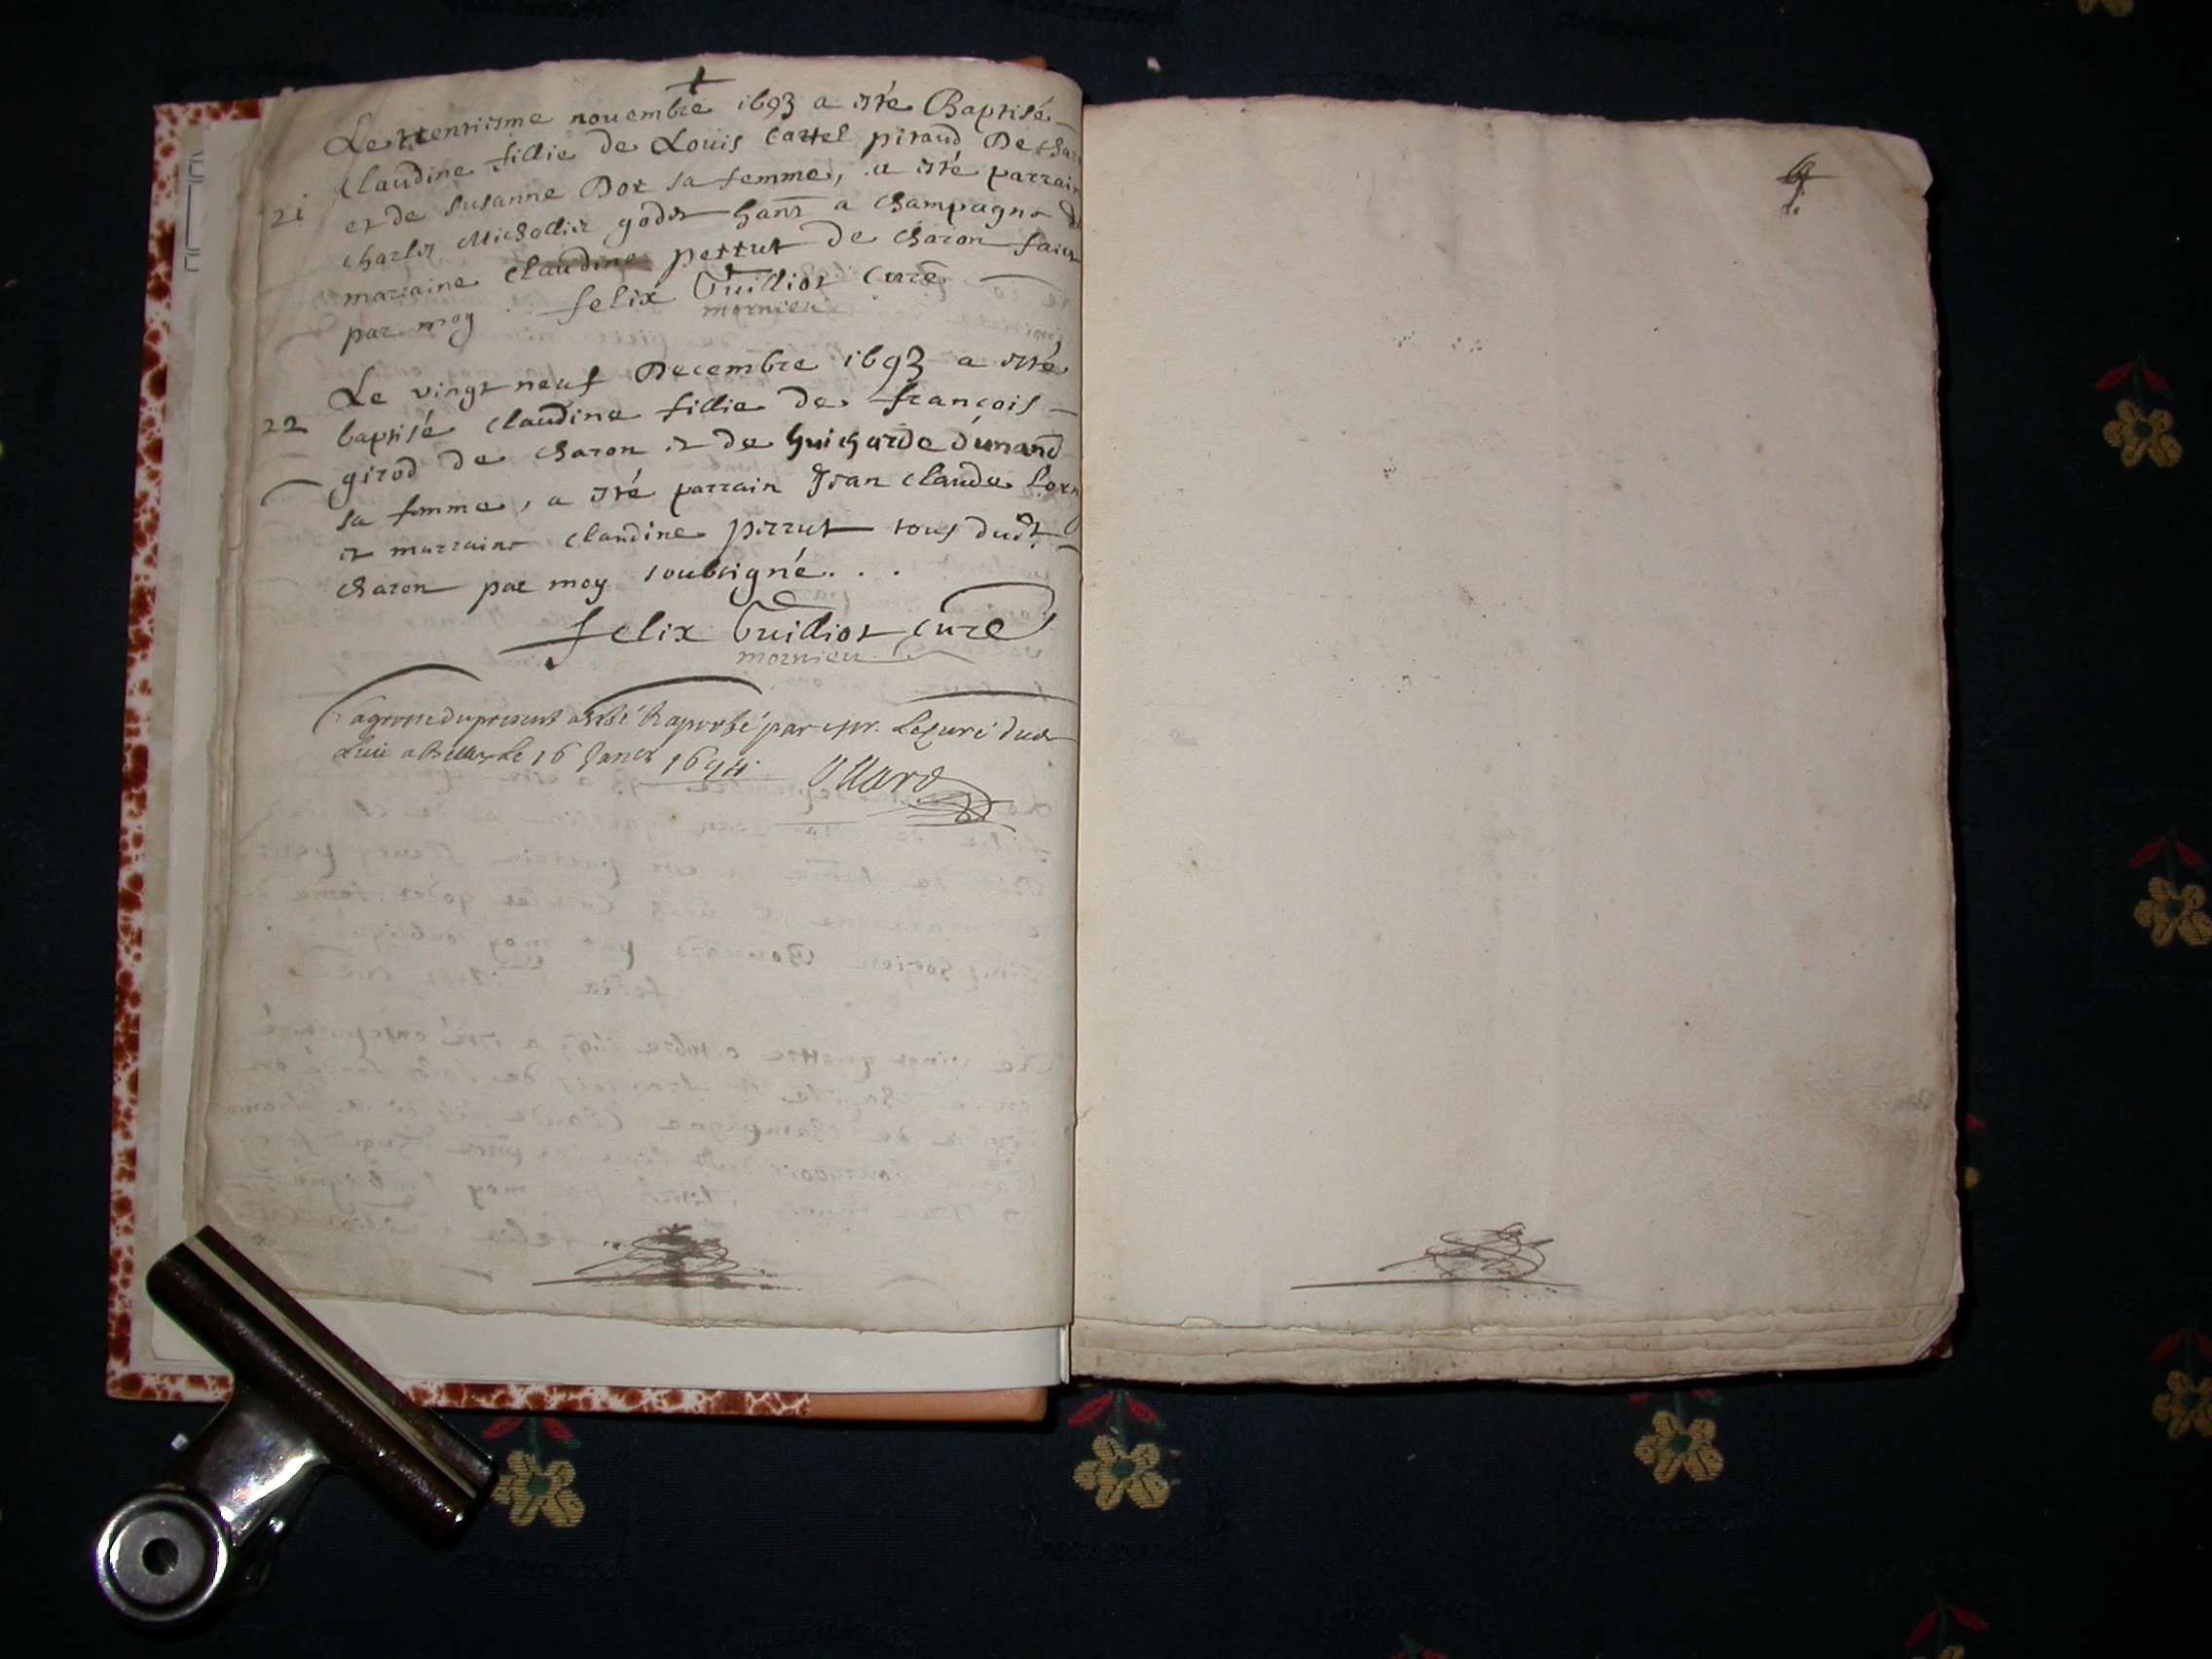 Le trentiesme novembre 1693 a esté Baptisé
Claudine fillie de Loüis Cartel piraud De
21
et de Susanne Dor sa femme, a esté parrain
Charles Michollier godet a Champagne
marraine Claudine perrut de Charon faict
par moy felix Guilliot Curé
mornieu
Le vingt neuf Decembre 1693 a esté
22
baptisé Claudine fillie de François
girod de Charon et de guicharde dunand
sa femme, a esté parrain Jean Claude
et marraine Claudine perrut tous dudt
Charon par moy soubsigné...
felix Guilliot Curé
mornieu
a grosse du present a esté raportée par Mr. Le Curé dud
Lieu a Belley Le 16 Janer 1694.